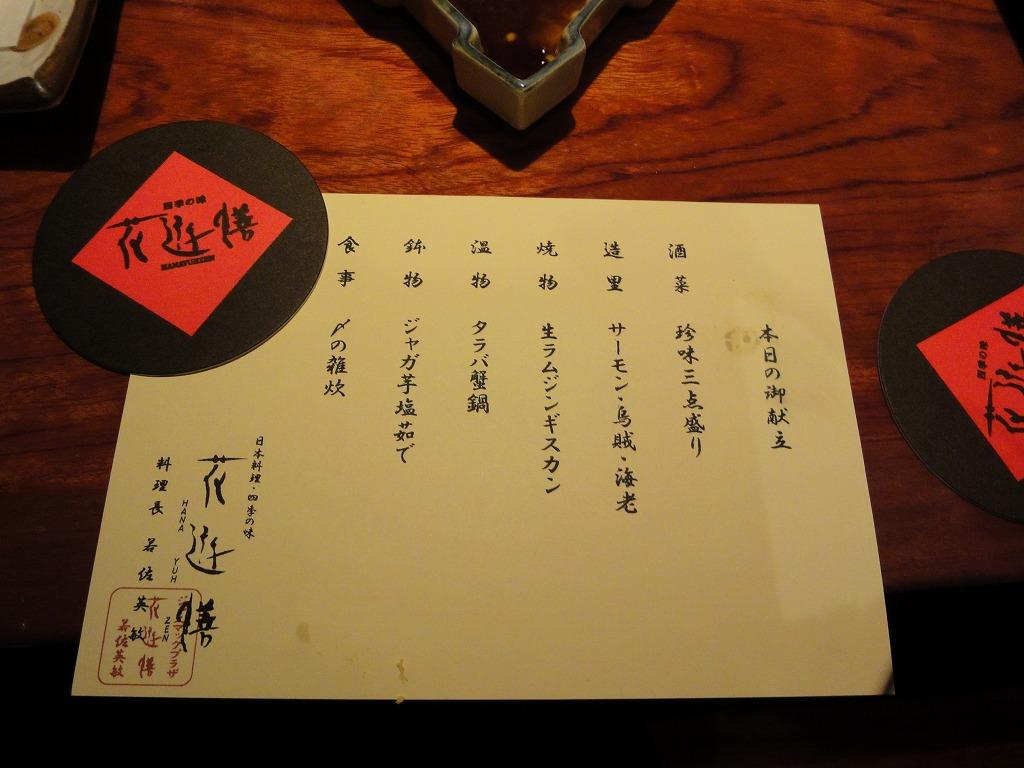 本日の御献立
酒菜 珍味三点盛り
造里 サーモン・烏賊・海老
焼物 生ラムジンギスカン
温物 タラバ蟹鍋
鉢物 ジャガ芋塩茹で
食事 〆の雑炊
日本料理・四季の味
花遊膳
HANA YUH ZEN
料理長 若佐英敏
花遊膳
若佐英敏
四季の味
花遊膳
HANAYUHZEN
四季の味
花遊膳